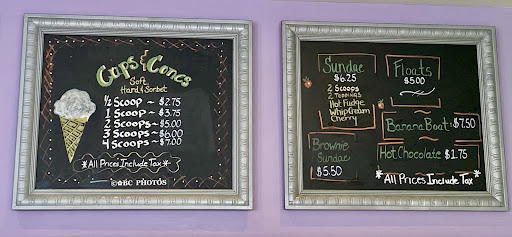 Cups & Cones
Soft
Hand & Sorbet
½ Scoop ~ $2.75
1 Scoop ~ $3.75
2 Scoops ~ $5.00
3 Scoops ~ $6.00
4 Scoops ~ $7.00
*All Prices Include Tax*
©ABC PHOTOS
Sundae
$6.25
2 Scoops
2 Toppings
Hot Fudge
Whip Cream
Cherry
Brownie
Sundae
$5.50
Floats
$5.00
Banana Boat: $7.50
Hot Chocolate $1.75
*All Prices Include Tax*